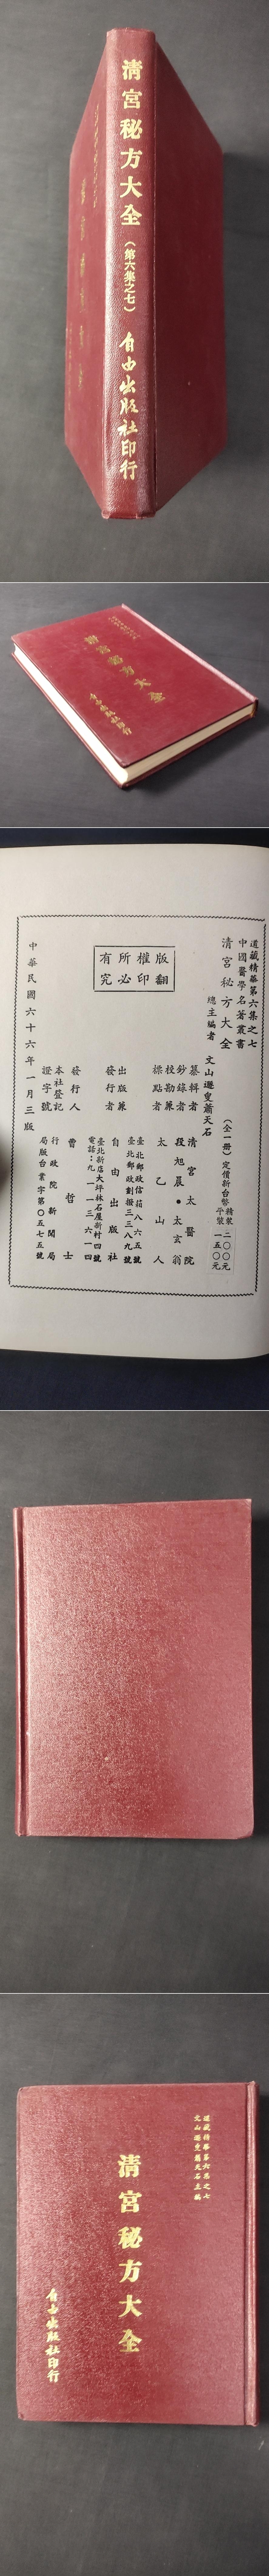 清宮秘方大全
（第六集之七）
自由出版社印行
清宮秘方大全
自由出版社印行
道藏精華第六集之七
中國醫學名著叢書
清宮秘方大全
（全一冊）定價新台幣
精裝二〇〇元
平裝一五〇元
總主編者 文山遯叟蕭天石
纂輯者 清宮太醫院
鈔錄者 段旭晨・太玄翁
校勘兼
標點者 太乙山人
版權所有
翻印必究
出版兼
發行者 自由出版社
臺北郵政信箱八六五號
臺北郵政劃撥三三八九號
臺北新店大坪林石屋新村四號
電話：九一一三六一四
發行人 曹哲士
本社登記
證字號
行政院新聞局
局版台業字第〇五七五號
中華民國六十六年一月三版
道藏精華第六集之七
文山遯叟蕭天石主編
清宮秘方大全
自由出版社印行